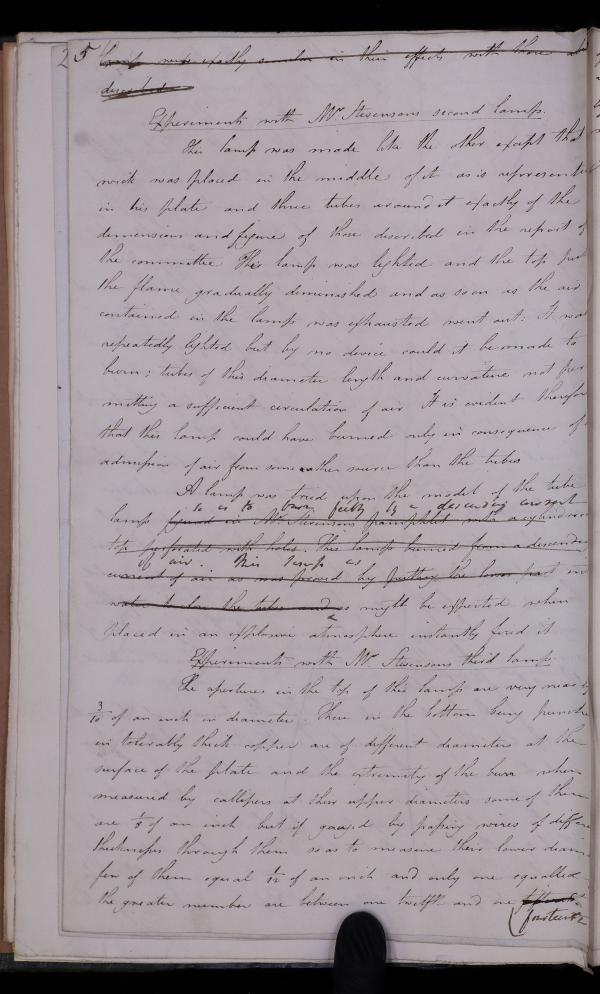 25
lamp were exactly similar in their effects with those
described
Experiments with Mr Stevensons second lamp.
This lamp was made like the other except that
wick was placed in the middle of it as is represent
in his plate and three tubes around it exactly of the
demensions and figure of those described in the report of
the committee This lamp was lighted and the top put
the flame gradually diminished and as soon as the air
contained in the lamp was exhausted went out: It was
repeatedly lighted but by no device could it be made to
burn; tubes of this diameter length and curvature not per
mitting a sufficient circulation of air It is evident therefor
that this lamp could have burned only in consequence of
admission of air from some other source than the tubes
A lamp was tried upon the model of the tube
so as to burn feebly by a descending current
lamp found in Mr Stevensons pamphlet with a cylindrical
top perforated with holes. This lamp burned from a descendin
of air. This lamp as
current of air as was proved by putting the lower part in
water to close the tubes and as might be expected when
placed in an explosive atmosphere instantly fired it
Experiments with Mr Stevensons third lamp.
The apertures in the top of this lamp are very near
3/10 of an inch in diameter. Those in the bottom being punctu
in tolerably thick copper are of different diameters at the
surface of the plate and the extremity of the burr when
measured by callipers at their upper diameters some of them
are 1/8 of an inch but if gauged by passing wires of differe
thicknesses through them so as to measure their lower diam
few of them equal 1/12 of an inch and only one equalled
the greater number are between one twelfth and one
fourteenth